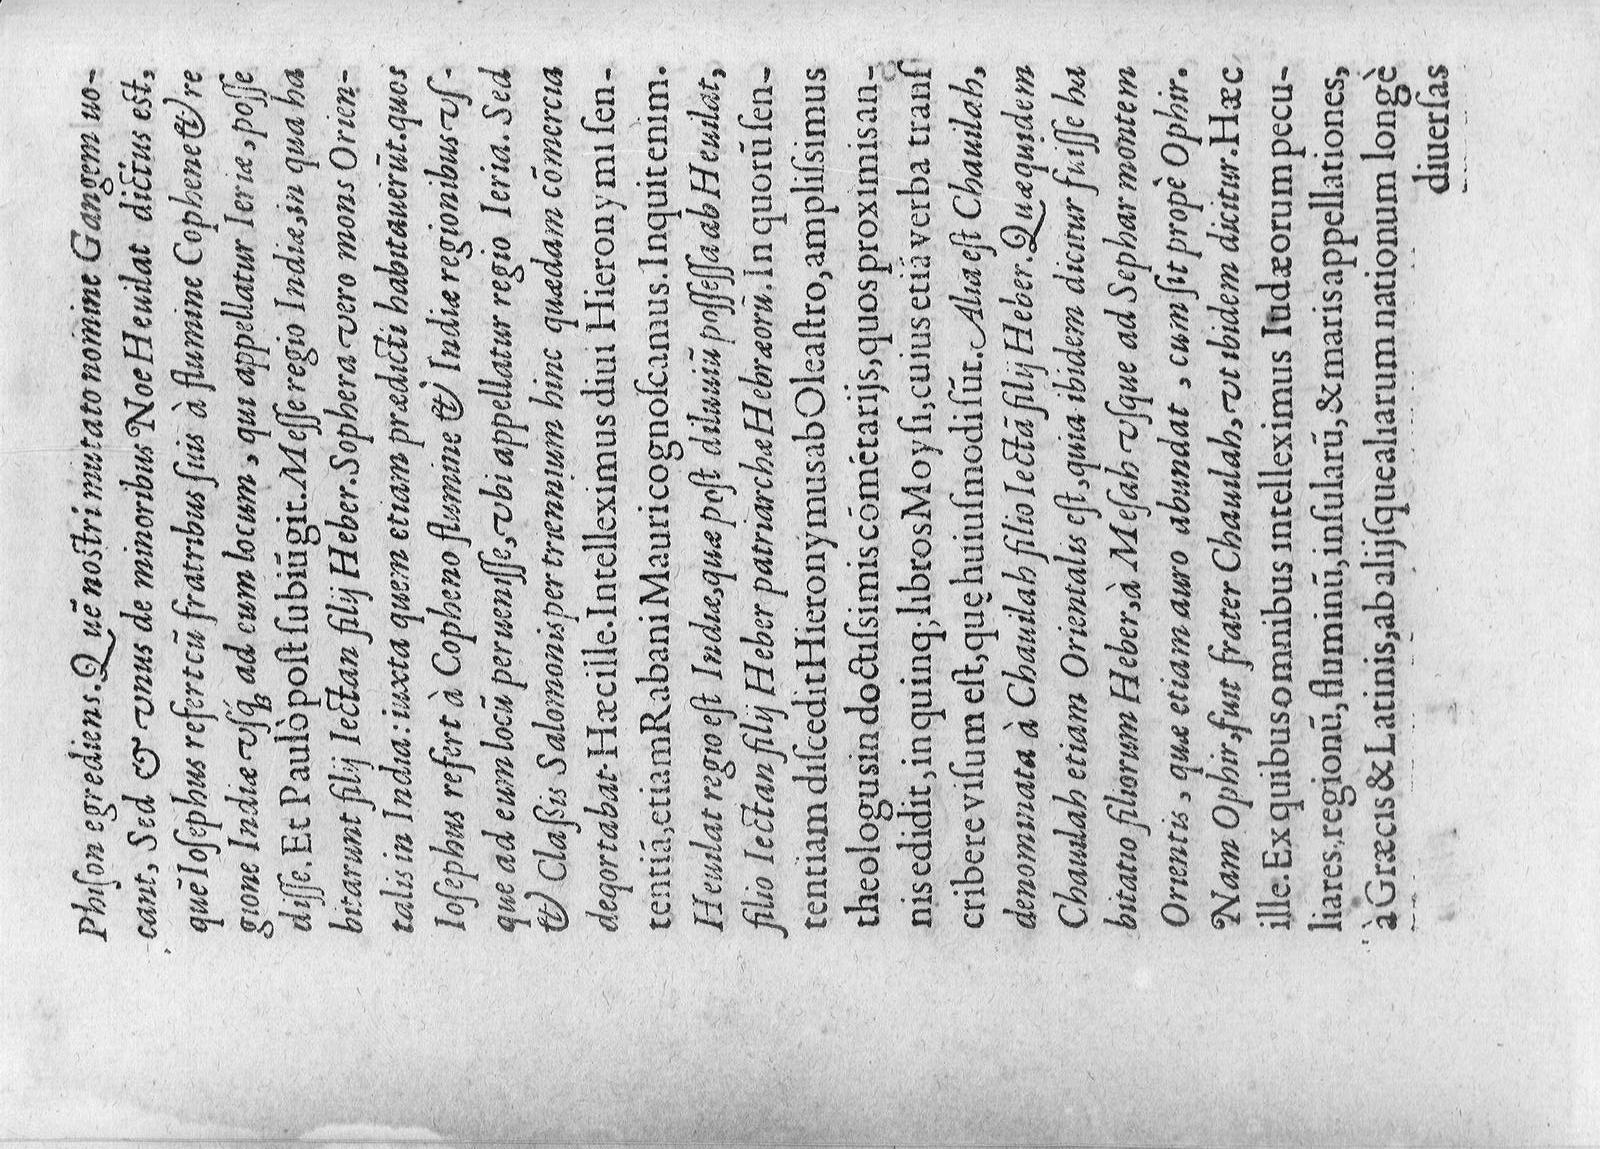 Phiſon egrediens. Quē noſtri mutato nomine Gangem uo-
cant, Sed & vnus de minoribus Noe Heuilat dictus est,
quē Ioſephus refert cū fratribus ſuis à flumine Cophene & re
gione Indiæ vſq; ad eum locum, qui appellatur Ieriæ, poſſe
diſſe. Et Paulò poſt ſubiūgit. Meſſe regio Indiæ, in qua ha
bitarunt filij Iectan filij Heber. Sophera vero mons Orien-
talis in India: iuxta quem etiam prædicti habitauerūt. quos
Ioſephus refert à Copheno flumine & Indiæ regionibus vſ-
que ad eum locū perueniſſe, vbi appellatur regio Ieria. Sed
& Claßis Salomonis per triennium hinc quædam cōmercia
deqortabat. Hæc ille. Intelleximus diui Hieronymi ſen-
tentiā, etiam Rabani Mauri cognoſcamus. Inquit enim.
Heuilat regio eſt Indiæ, quæ poſt diluuiū poſſeſſa ab Heuilat,
filio Iectan filij Heber patriarchæ Hebræorū. In quorū ſen-
tentiam diſcedit Hieronymus ab Oleaſtro, ampliſsimus
theologus in doctiſsimis cōmētarijs, quos proximis an-
nis edidit, in quinq; libros Moyſi, cuius etiā verba tranſ
cribere viſum eſt, quę huiuſmodi ſūt. Alia eſt Chauilah,
denominata à Chauilah filio Iectā filij Heber. Quæ quidem
Chauilah etiam Orientalis eſt, quia ibidem dicitur fuiſſe ha
bitatio filiorum Heber, à Meſah vſque ad Sephar montem
Orientis, quæ etiam auro abundat, cum ſit propè Ophir.
Nam Ophir, fuit frater Chauilah, vt ibidem dicitur. Hæc
ille. Ex quibus omnibus intelleximus Iudæorum pecu-
liares, regionū, fluminū, inſularū, & maris appellationes,
à Græcis & Latinis, ab alijſque aliarum nationum longè
diuerſas